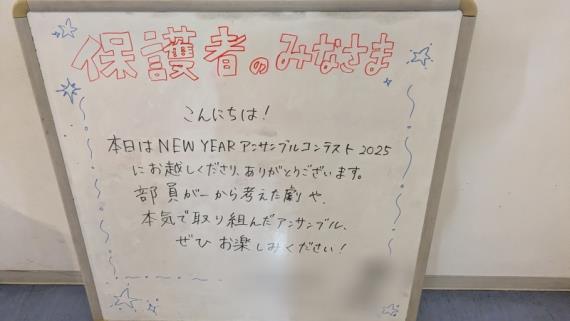 保護者のみなさま
こんにちは!
本日は NEW YEAR アンサンブルコンテスト 2025
にお越しくださり、ありがとうございます。
部員が一から考えた劇や、
本気で取り組んだアンサンブル、
ぜひ お楽しみください!